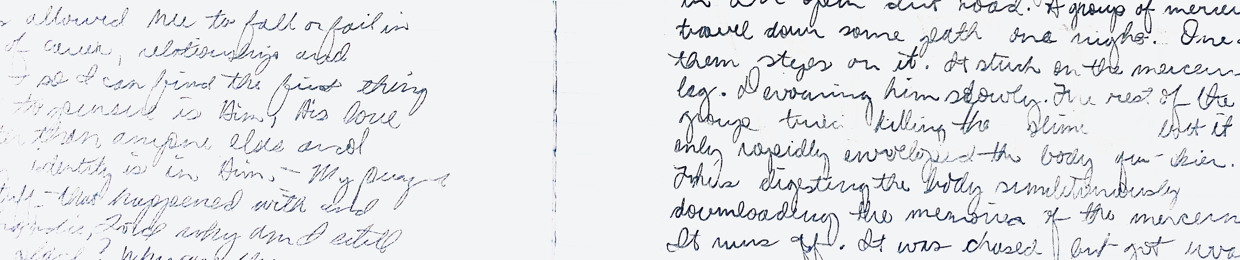 allowed me to fall or fail in
of career, relationships and
so I can find the first thing
to pursue is Him, His love
than anyone else and
identity is in Him. - My
that happened with and
Lord why am I still
in an open dirt road. A group of
travel down some path one night. One
them steps on it. It stuck on the
leg. Devouring him slowly. The rest of the
group tried killing the slime but it
only rapidly enveloped the body
Thus digesting the body simultaneously
downloading the memories of the
It runs off. It was chased but got